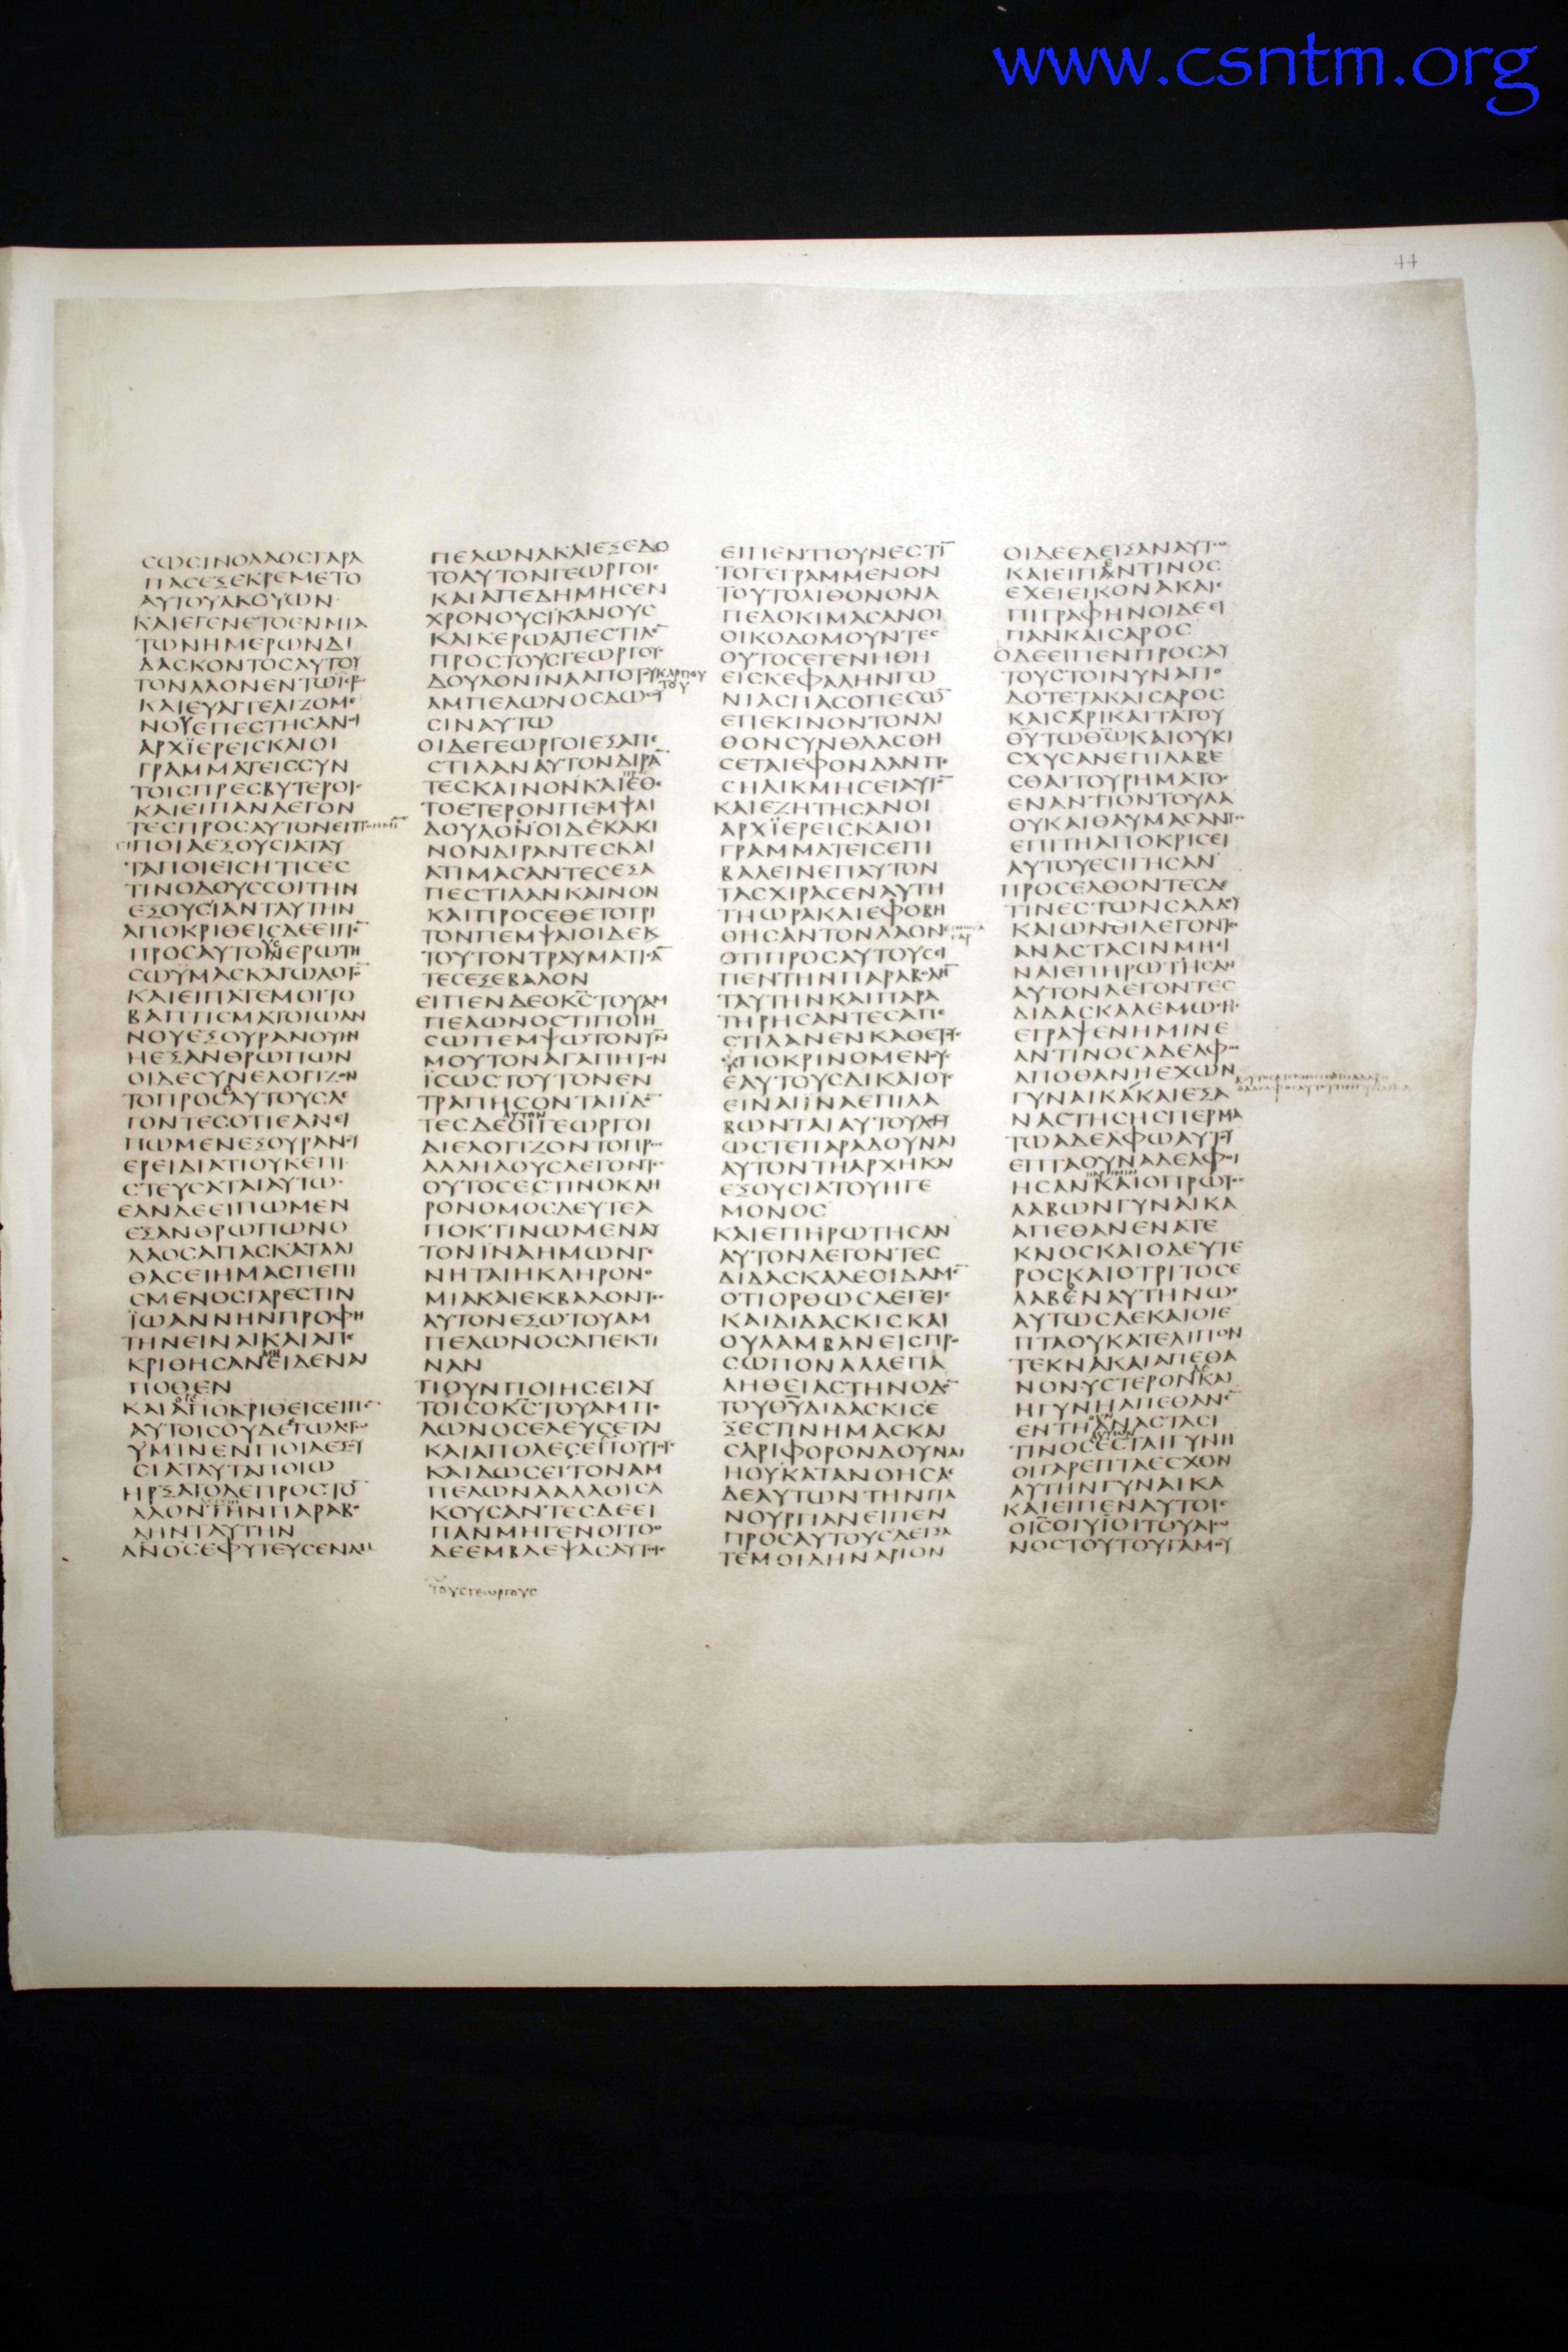 www.csntm.org
44
ΣΩΣΙΝΟΛΑΟΣΓΑΡΑ
ΠΑΣΕΞΕΚΡΕΜΕΤΟ
ΑΥΤΟΥΑΚΟΥΩΝ
ΚΑΙΕΓΕΝΕΤΟΕΝΜΙΑ
ΤΩΝΗΜΕΡΩΝΔΙ
ΔΑΣΚΟΝΤΟΣΑΥΤΟΥ
ΤΟΝΛΑΟΝΕΝΤΩΙΕΡ
ΚΑΙΕΥΑΓΓΕΛΙΖΟΜΕ
ΝΟΥΕΠΕΣΤΗΣΑΝΟΙ
ΑΡΧΪΕΡΕΙΣΚΑΙΟΙ
ΓΡΑΜΜΑΤΕΙΣΣΥΝ
ΤΟΙΣΠΡΕΣΒΥΤΕΡΟΙΣ
ΚΑΙΕΙΠΑΝΛΕΓΟΝ
ΤΕΣΠΡΟΣΑΥΤΟΝΕΙΠ
ΠΟΙΑΕΞΟΥΣΙΑΤΑΥ
ΤΑΠΟΙΕΙΣΗΤΙΣΕΣ
ΤΙΝΟΔΟΥΣΣΟΙΤΗΝ
ΕΞΟΥΣΙΑΝΤΑΥΤΗΝ
ΑΠΟΚΡΙΘΕΙΣΔΕΕΙΠΕ̅
ΠΡΟΣΑΥΤΟΝΕΡΩΤΗ
ΣΩΥΜΑΣΚΑΓΩΛΟΓΟ̅
ΚΑΙΕΙΠΑΤΕΜΟΙΤΟ
ΒΑΠΤΙΣΜΑΤΟΙΩΑΝ
ΝΟΥΕΞΟΥΡΑΝΟΥΗΝ
ΗΕΞΑΝΘΡΩΠΩΝ
ΟΙΔΕΣΥΝΕΛΟΓΙΖΟΝ
ΤΟΠΡΟΣΑΥΤΟΥΣΛΕ
ΓΟΝΤΕΣΟΤΙΕΑΝΕΙ
ΠΩΜΕΝΕΞΟΥΡΑΝΟΥ
ΕΡΕΙΔΙΑΤΙΟΥΚΕΠΙ
ΣΤΕΥΣΑΤΑΙΑΥΤΩ
ΕΑΝΔΕΕΙΠΩΜΕΝ
ΕΞΑΝΘΡΩΠΩΝΟ
ΛΑΟΣΑΠΑΣΚΑΤΑΛΙ
ΘΑΣΕΙΗΜΑΣΠΕΠΙ
ΣΜΕΝΟΣΓΑΡΕΣΤΙΝ
ΪΩΑΝΝΗΝΠΡΟΦΗ
ΤΗΝΕΙΝΑΙΚΑΙΑΠΕ
ΚΡΙΘΗΣΑΝΕΙΔΕΝΑΙ
ΠΟΘΕΝ
ΚΑΙΑΠΟΚΡΙΘΕΙΣΕΙΠΕ
ΑΥΤΟΙΣΟΥΔΕΓΩΛΕΓΩ
ΥΜΙΝΕΝΠΟΙΑΕΞΟΥ
ΣΙΑΤΑΥΤΑΠΟΙΩ
ΗΡΞΑΤΟΔΕΠΡΟΣΤΟ̅
ΛΑΟΝΤΗΝΠΑΡΑΒΟ
ΛΗΝΤΑΥΤΗΝ
ΑΝΟΣΕΦΥΤΕΥΣΕΝΑΜ
ΠΕΛΩΝΑΚΑΙΕΞΕΔΟ
ΤΟΑΥΤΟΝΓΕΩΡΓΟΙΣ
ΚΑΙΑΠΕΔΗΜΗΣΕΝ
ΧΡΟΝΟΥΣΪΚΑΝΟΥΣ
ΚΑΙΚΕΡΩΑΠΕΣΤΙΛΕ̅
ΠΡΟΣΤΟΥΣΓΕΩΡΓΟΥΣ
ΔΟΥΛΟΝΙΝΑΑΠΟΤΟΥΚΑΡΠΟΥ
ΤΟΥ
ΑΜΠΕΛΩΝΟΣΔΩΣΟΥ
ΣΙΝΑΥΤΩ
ΟΙΔΕΓΕΩΡΓΟΙΕΞΑΠΕ
ΣΤΙΛΑΝΑΥΤΟΝΔΙΡΑ̅
ΤΕΣΚΑΙΝΟΝΚΑΙΕΘΕ
ΤΟΕΤΕΡΟΝΠΕΜΨΑΙ
ΔΟΥΛΟΝΟΙΔΕΚΑΚΙ
ΝΟΝΔΙΡΑΝΤΕΣΚΑΙ
ΑΤΙΜΑΣΑΝΤΕΣΕΞΑ
ΠΕΣΤΙΛΑΝΚΑΙΝΟΝ
ΚΑΙΠΡΟΣΕΘΕΤΟΤΡΙ
ΤΟΝΠΕΜΨΑΙΟΙΔΕΚ
ΤΟΥΤΟΝΤΡΑΥΜΑΤΙΣΑ̅
ΤΕΣΕΞΕΒΑΛΟΝ
ΕΙΠΕΝΔΕΟΚ̅Σ̅ΤΟΥΑΜ
ΠΕΛΩΝΟΣΤΙΠΟΙΗ
ΣΩΠΕΜΨΩΤΟΝΥ̅Ν̅
ΜΟΥΤΟΝΑΓΑΠΗΤΟΝ
ΪΣΩΣΤΟΥΤΟΝΕΝ
ΤΡΑΠΗΣΟΝΤΑΙΪΔΟ̅
ΤΕΣΔΕΟΙΓΕΩΡΓΟΙ
ΔΙΕΛΟΓΙΖΟΝΤΟΠΡΟΣ
ΑΛΛΗΛΟΥΣΛΕΓΟΝΤΕΣ
ΟΥΤΟΣΕΣΤΙΝΟΚΛΗ
ΡΟΝΟΜΟΣΔΕΥΤΕΑ
ΠΟΚΤΙΝΩΜΕΝΑΥ
ΤΟΝΪΝΑΗΜΩΝΓΕ
ΝΗΤΑΙΗΚΛΗΡΟΝΟ
ΜΙΑΚΑΙΕΚΒΑΛΟΝΤΕΣ
ΑΥΤΟΝΕΞΩΤΟΥΑΜ
ΠΕΛΩΝΟΣΑΠΕΚΤΙ
ΝΑΝ
ΤΙΟΥΝΠΟΙΗΣΕΙΑΥ
ΤΟΙΣΟΚ̅Σ̅ΤΟΥΑΜΠΕ
ΛΩΝΟΣΕΛΕΥΣΕΤΑΙ
ΚΑΙΑΠΟΛΕΣΕΙΤΟΥΤΟΥΣ
ΚΑΙΔΩΣΕΙΤΟΝΑΜ
ΠΕΛΩΝΑΑΛΛΟΙΣΑ
ΚΟΥΣΑΝΤΕΣΔΕΕΙ
ΠΑΝΜΗΓΕΝΟΙΤΟΟ
ΔΕΕΜΒΛΕΨΑΣΑΥΤΟΙΣ
ΤΟΥΣΓΕΩΡΓΟΥΣ
ΕΙΠΕΝΤΙΟΥΝΕΣΤΙ̅
ΤΟΓΕΓΡΑΜΜΕΝΟΝ
ΤΟΥΤΟΛΙΘΟΝΟΝΑ
ΠΕΔΟΚΙΜΑΣΑΝΟΙ
ΟΙΚΟΔΟΜΟΥΝΤΕΣ
ΟΥΤΟΣΕΓΕΝΗΘΗ
ΕΙΣΚΕΦΑΛΗΝΓΩ
ΝΙΑΣΠΑΣΟΠΕΣΩ̅
ΕΠΕΚΙΝΟΝΤΟΝΛΙ
ΘΟΝΣΥΝΘΛΑΣΘΗ
ΣΕΤΑΙΕΦΟΝΔΑΝΠΕ
ΣΗΛΙΚΜΗΣΕΙΑΥΤΟ̅
ΚΑΙΕΖΗΤΗΣΑΝΟΙ
ΑΡΧΪΕΡΕΙΣΚΑΙΟΙ
ΓΡΑΜΜΑΤΕΙΣΕΠΙ
ΒΑΛΕΙΝΕΠΑΥΤΟΝ
ΤΑΣΧΙΡΑΣΕΝΑΥΤΗ
ΤΗΩΡΑΚΑΙΕΦΟΒΗ
ΘΗΣΑΝΤΟΝΛΑΟΝ
ΟΤΙΠΡΟΣΑΥΤΟΥΣΕΙ
ΠΕΝΤΗΝΠΑΡΑΒΟΛΗ̅
ΤΑΥΤΗΝΚΑΙΠΑΡΑ
ΤΗΡΗΣΑΝΤΕΣΑΠΕ
ΣΤΙΛΑΝΕΝΚΑΘΕΤΟΥΣ
ΫΠΟΚΡΙΝΟΜΕΝΟΥΣ
ΕΑΥΤΟΥΣΔΙΚΑΙΟΥΣ
ΕΙΝΑΙΪΝΑΕΠΙΛΑ
ΒΩΝΤΑΙΑΥΤΟΥΛΟΓΟΥ
ΩΣΤΕΠΑΡΑΔΟΥΝΑΙ
ΑΥΤΟΝΤΗΑΡΧΗΚΑΙ
ΕΞΟΥΣΙΑΤΟΥΗΓΕ
ΜΟΝΟΣ
ΚΑΙΕΠΗΡΩΤΗΣΑΝ
ΑΥΤΟΝΛΕΓΟΝΤΕΣ
ΔΙΔΑΣΚΑΛΕΟΙΔΑΜΕ̅
ΟΤΙΟΡΘΩΣΛΕΓΕΙΣ
ΚΑΙΔΙΔΑΣΚΙΣΚΑΙ
ΟΥΛΑΜΒΑΝΕΙΣΠΡΟ
ΣΩΠΟΝΑΛΛΕΠΑ
ΛΗΘΕΙΑΣΤΗΝΟΔΟ̅
ΤΟΥΘ̅Υ̅ΔΙΔΑΣΚΙΣΕ
ΞΕΣΤΙΝΗΜΑΣΚΑΙ
ΣΑΡΙΦΟΡΟΝΔΟΥΝΑΙ
ΗΟΥΚΑΤΑΝΟΗΣΑΣ
ΔΕΑΥΤΩΝΤΗΝΠΑ
ΝΟΥΡΓΙΑΝΕΙΠΕΝ
ΠΡΟΣΑΥΤΟΥΣΔΕΙΞΑ
ΤΕΜΟΙΔΗΝΑΡΙΟΝ
ΟΙΔΕΕΔΕΙΞΑΝΑΥΤΩ
ΚΑΙΕΙΠΑΝΤΙΝΟΣ
ΕΧΕΙΕΙΚΟΝΑΚΑΙΕ
ΠΙΓΡΑΦΗΝΟΙΔΕΕΙ
ΠΑΝΚΑΙΣΑΡΟΣ
ΟΔΕΕΙΠΕΝΠΡΟΣΑΥ
ΤΟΥΣΤΟΙΝΥΝΑΠΟ
ΔΟΤΕΤΑΚΑΙΣΑΡΟΣ
ΚΑΙΣΑΡΙΚΑΙΤΑΤΟΥ
Θ̅Υ̅ΤΩΘ̅Ω̅ΚΑΙΟΥΚΙ
ΣΧΥΣΑΝΕΠΙΛΑΒΕ
ΣΘΑΙΤΟΥΡΗΜΑΤΟΣ
ΕΝΑΝΤΙΟΝΤΟΥΛΑ
ΟΥΚΑΙΘΑΥΜΑΣΑΝΤΕΣ
ΕΠΙΤΗΑΠΟΚΡΙΣΕΙ
ΑΥΤΟΥΕΣΙΓΗΣΑΝ
ΠΡΟΣΕΛΘΟΝΤΕΣΔΕ
ΤΙΝΕΣΤΩΝΣΑΔΔΟΥ
ΚΑΙΩΝΟΙΛΕΓΟΝΤΕΣ
ΑΝΑΣΤΑΣΙΝΜΗΕΙ
ΝΑΙΕΠΗΡΩΤΗΣΑΝ
ΑΥΤΟΝΛΕΓΟΝΤΕΣ
ΔΙΔΑΣΚΑΛΕΜΩΥΣΗΣ
ΕΓΡΑΨΕΝΗΜΙΝΕ
ΑΝΤΙΝΟΣΑΔΕΛΦΟΣ
ΑΠΟΘΑΝΗΕΧΩΝ
ΓΥΝΑΙΚΑΚΑΙΕΞΑ
ΝΑΣΤΗΣΗΣΠΕΡΜΑ
ΤΩΑΔΕΛΦΩΑΥΤΟΥ
ΕΠΤΑΟΥΝΑΔΕΛΦΟΙ
ΗΣΑΝΚΑΙΟΠΡΩΤΟΣ
ΛΑΒΩΝΓΥΝΑΙΚΑ
ΑΠΕΘΑΝΕΝΑΤΕ
ΚΝΟΣΚΑΙΟΔΕΥΤΕ
ΡΟΣΚΑΙΟΤΡΙΤΟΣΕ
ΛΑΒΕΝΑΥΤΗΝΩΣ
ΑΥΤΩΣΔΕΚΑΙΟΙΕ
ΠΤΑΟΥΚΑΤΕΛΙΠΟΝ
ΤΕΚΝΑΚΑΙΑΠΕΘΑ
ΝΟΝΥΣΤΕΡΟΝΚΑΙ
ΗΓΥΝΗΑΠΕΘΑΝΕ̅
ΕΝΤΗΑΝΑΣΤΑΣΙ
ΤΙΝΟΣΕΣΤΑΙΓΥΝΗ
ΟΙΓΑΡΕΠΤΑΕΣΧΟΝ
ΑΥΤΗΝΓΥΝΑΙΚΑ
ΚΑΙΕΙΠΕΝΑΥΤΟΙΣ
ΟΙ̅Σ̅ΟΙΥΪΟΙΤΟΥΑΙΩ
ΝΟΣΤΟΥΤΟΥΓΑΜΟΥ